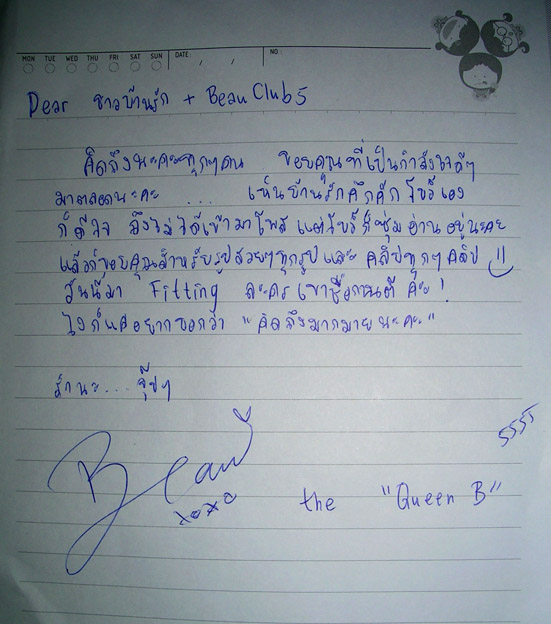 MON TUE WED THU FRI SAT SUN DATE / / NO.
Dear ชาวบ้านรัก + Beau Club 5
คิดถึงนะคะทุกๆคน ขอบคุณที่เป็นกำลังใจดีๆ
มาตลอดนะคะ ... เห็นบ้านรักคึกคัก โบว์เอง
ก็ดีใจ ถึงไม่ได้เข้ามาโพส แต่โบว์ก็ซุ่มอ่านอยู่นะคะ
แล้วก็ขอบคุณสำหรับรูปสวยๆทุกรูปและ คลิปทุกๆคลิป
วันนี้มา Fitting ละคร เขาชื่อกานต์ ค่ะ!
ไงก็แค่อยากบอกว่า "คิดถึงมากมายนะคะ"
รักนะ... จุ๊บๆ
5555
Beau
xoxo
the "Queen B"